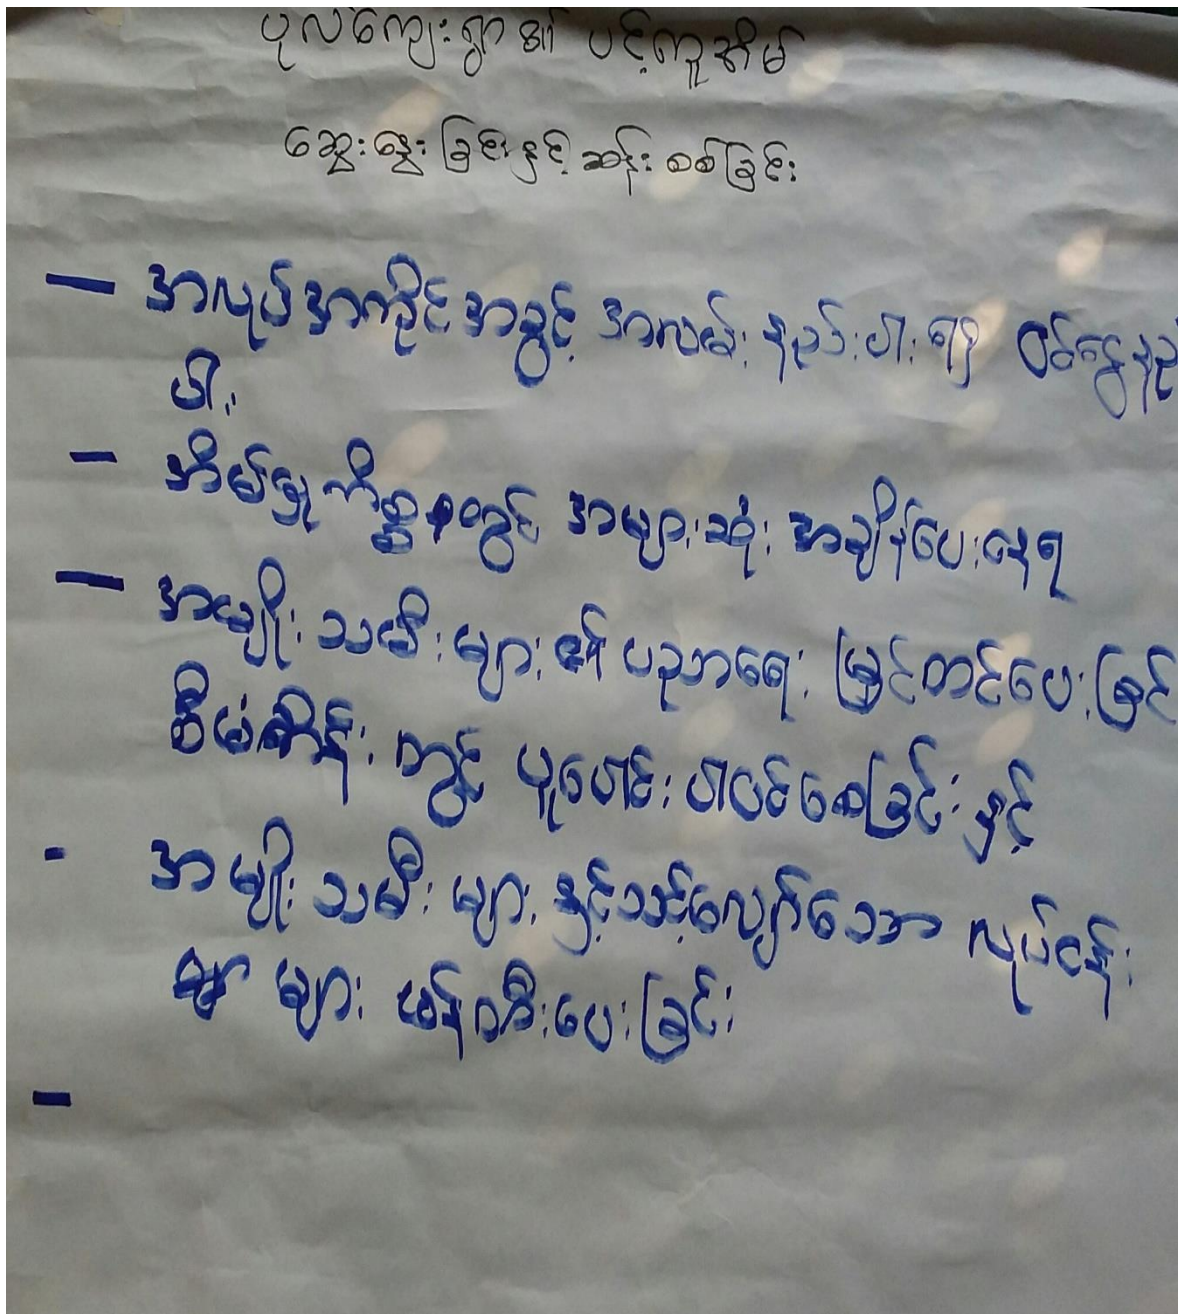 ပုလဲကျေးရွာ၏ ပင့်ကူအိမ်
ဆွေးနွေးခြင်းနှင့် ဆန်းစစ်ခြင်း
— အလုပ်အကိုင်အခွင့် အလမ်း နည်းပါး၍ ဝင်ငွေနည်
ပါး
— အိမ်မှုကိစ္စတွင် အများဆုံး အချိန်ပေးနေရ
— အမျိုးသမီးများ၏ ပညာရေး မြှင့်တင်ပေးခြင်
စီမံကိန်းတွင် ပူးပေါင်းပါဝင်စေခြင်းနှင့်
- အမျိုးသမီးများနှင့်သင့်လျော်သော လုပ်ငန်း
များ ဖန်တီးပေးခြင်း
—